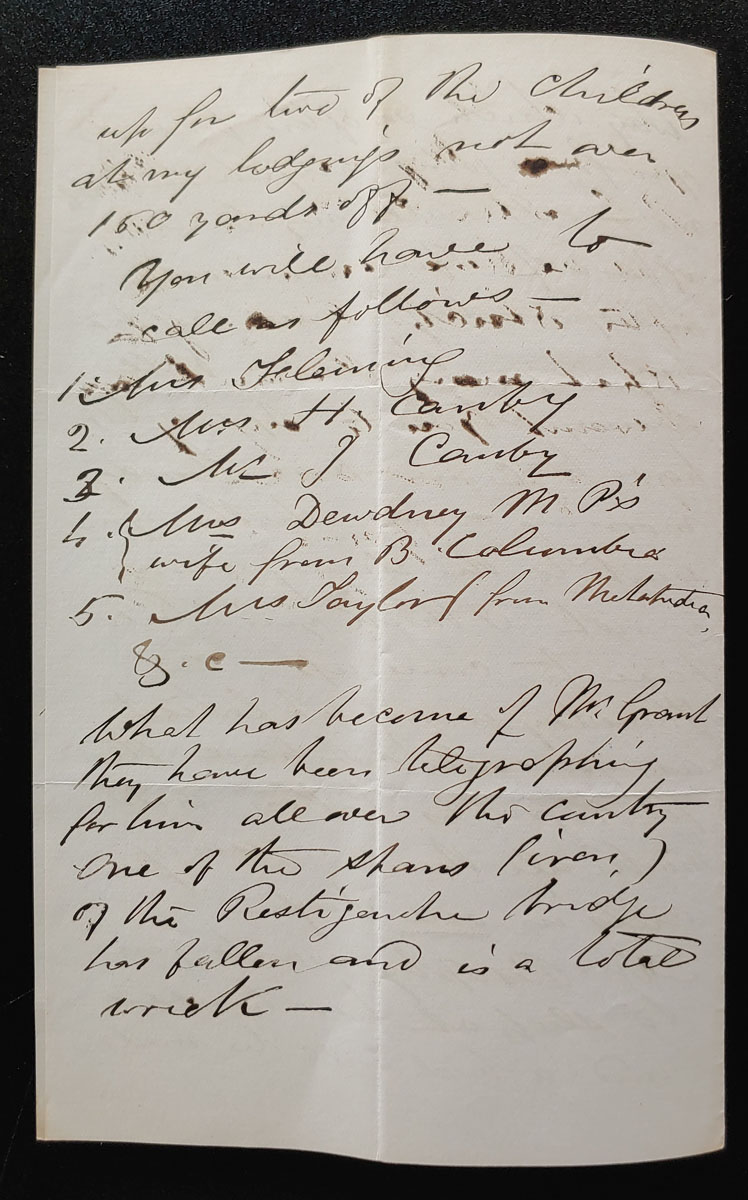 up for two of the Children
at my lodgings not over
150 yards off —
You will have to
call as follows —
1. Mrs Fleming
2. Mrs. H. Canby
3. Mr J Canby
4. Mrs Dewdney M P's
wife from B. Columbia
5. Mrs Taylor (from
&.c —
What has become of Mr Grant
they have been telegraphing
for him all over the cuntry
one of the spans (iron)
of the Restigouche bridge
has fallen and is a total
wreck —